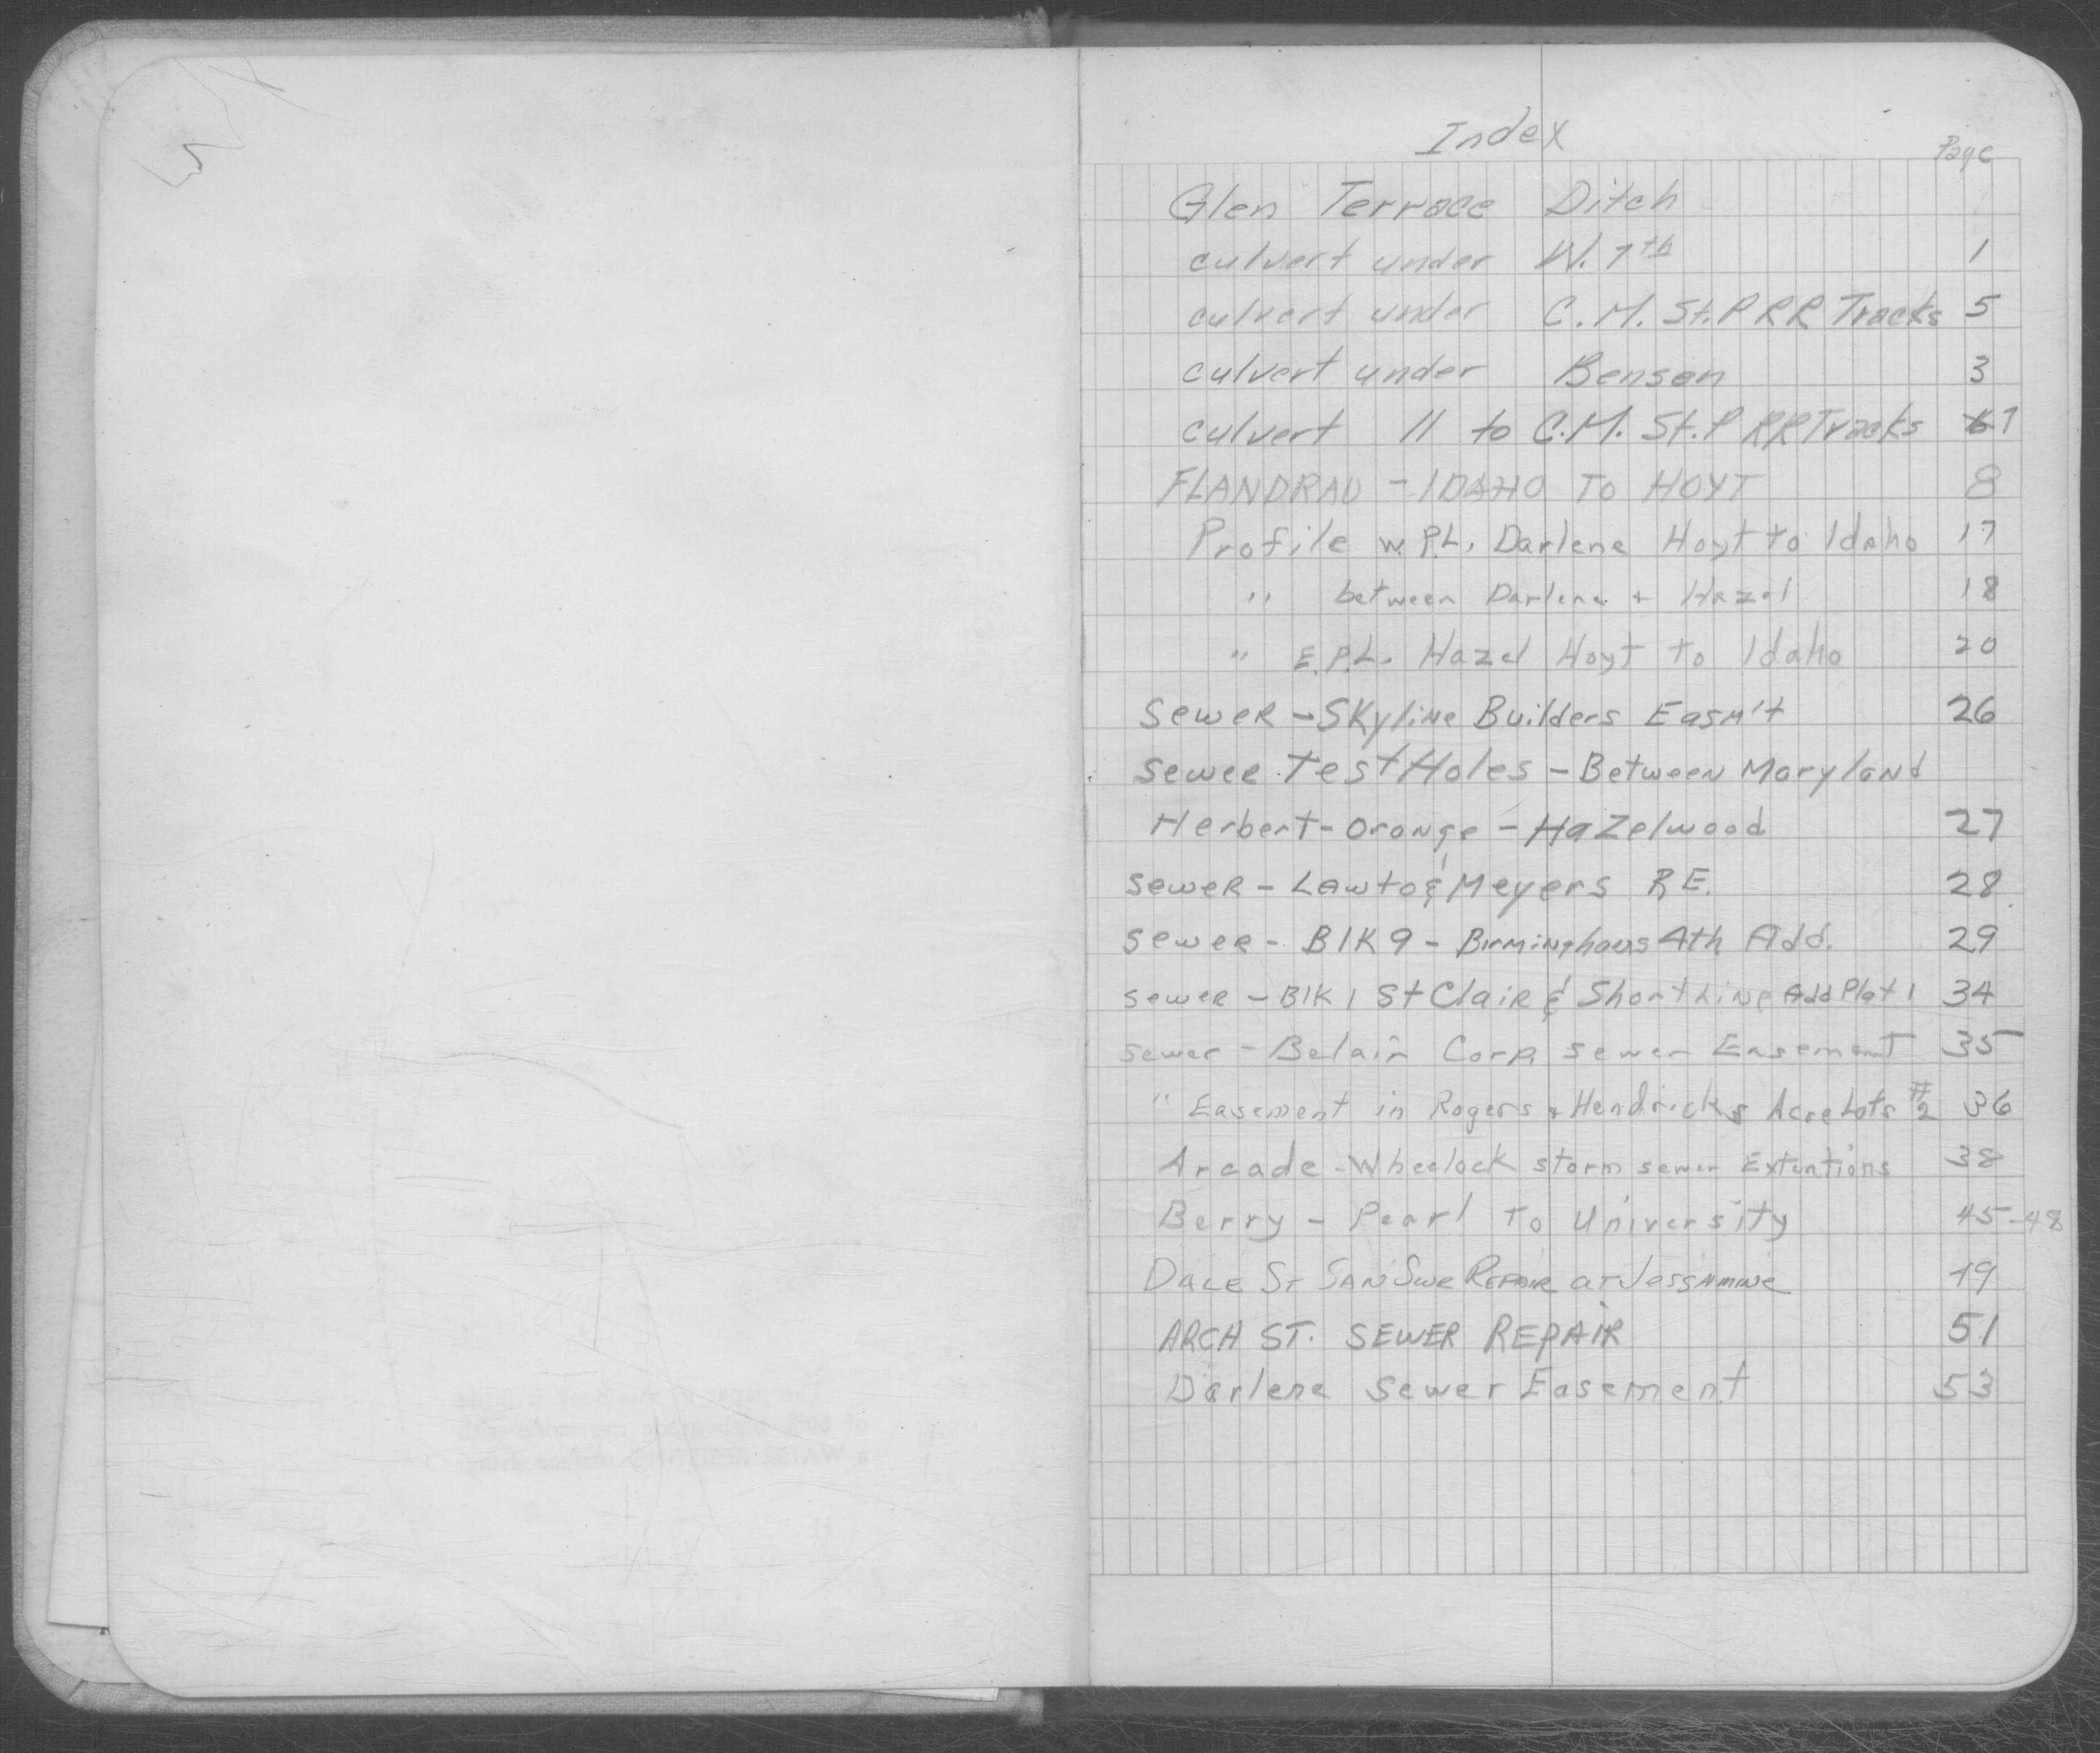 Index
Page
Glen Terrace Ditch
culvert under W. 7th 1
culvert under C. M. St. P RR Tracks 5
culvert under Benson 3
culvert // to C.M. St. P RR Tracks 7
FLANDRAU - IDAHO TO HOYT 8
Profile W. P.L. Darlene Hoyt to Idaho 17
" between Darlene + Hazel 18
" E.P.L. Hazel Hoyt to Idaho 20
Sewer - Skyline Builders Easm't 26
Sewer Test Holes - Between Maryland
Herbert - Orange - Hazelwood 27
Sewer - Lawto & Meyers R E. 28
Sewer - Blk 9 - Birminghams 4th Add. 29
Sewer - Blk 1 St Clair & Short Line Add Plat 1 34
Sewer - Belair Corp. Sewer Easement 35
" Easement in Rogers & Hendricks Acre Lots #2 36
Arcade - Wheelock storm sewer Extentions 38
Berry - Pearl To University 45-48
DALE ST SAN SWE REPAIR AT JESSAMINE 49
ARCH ST. SEWER REPAIR 51
Darlene Sewer Easement 53